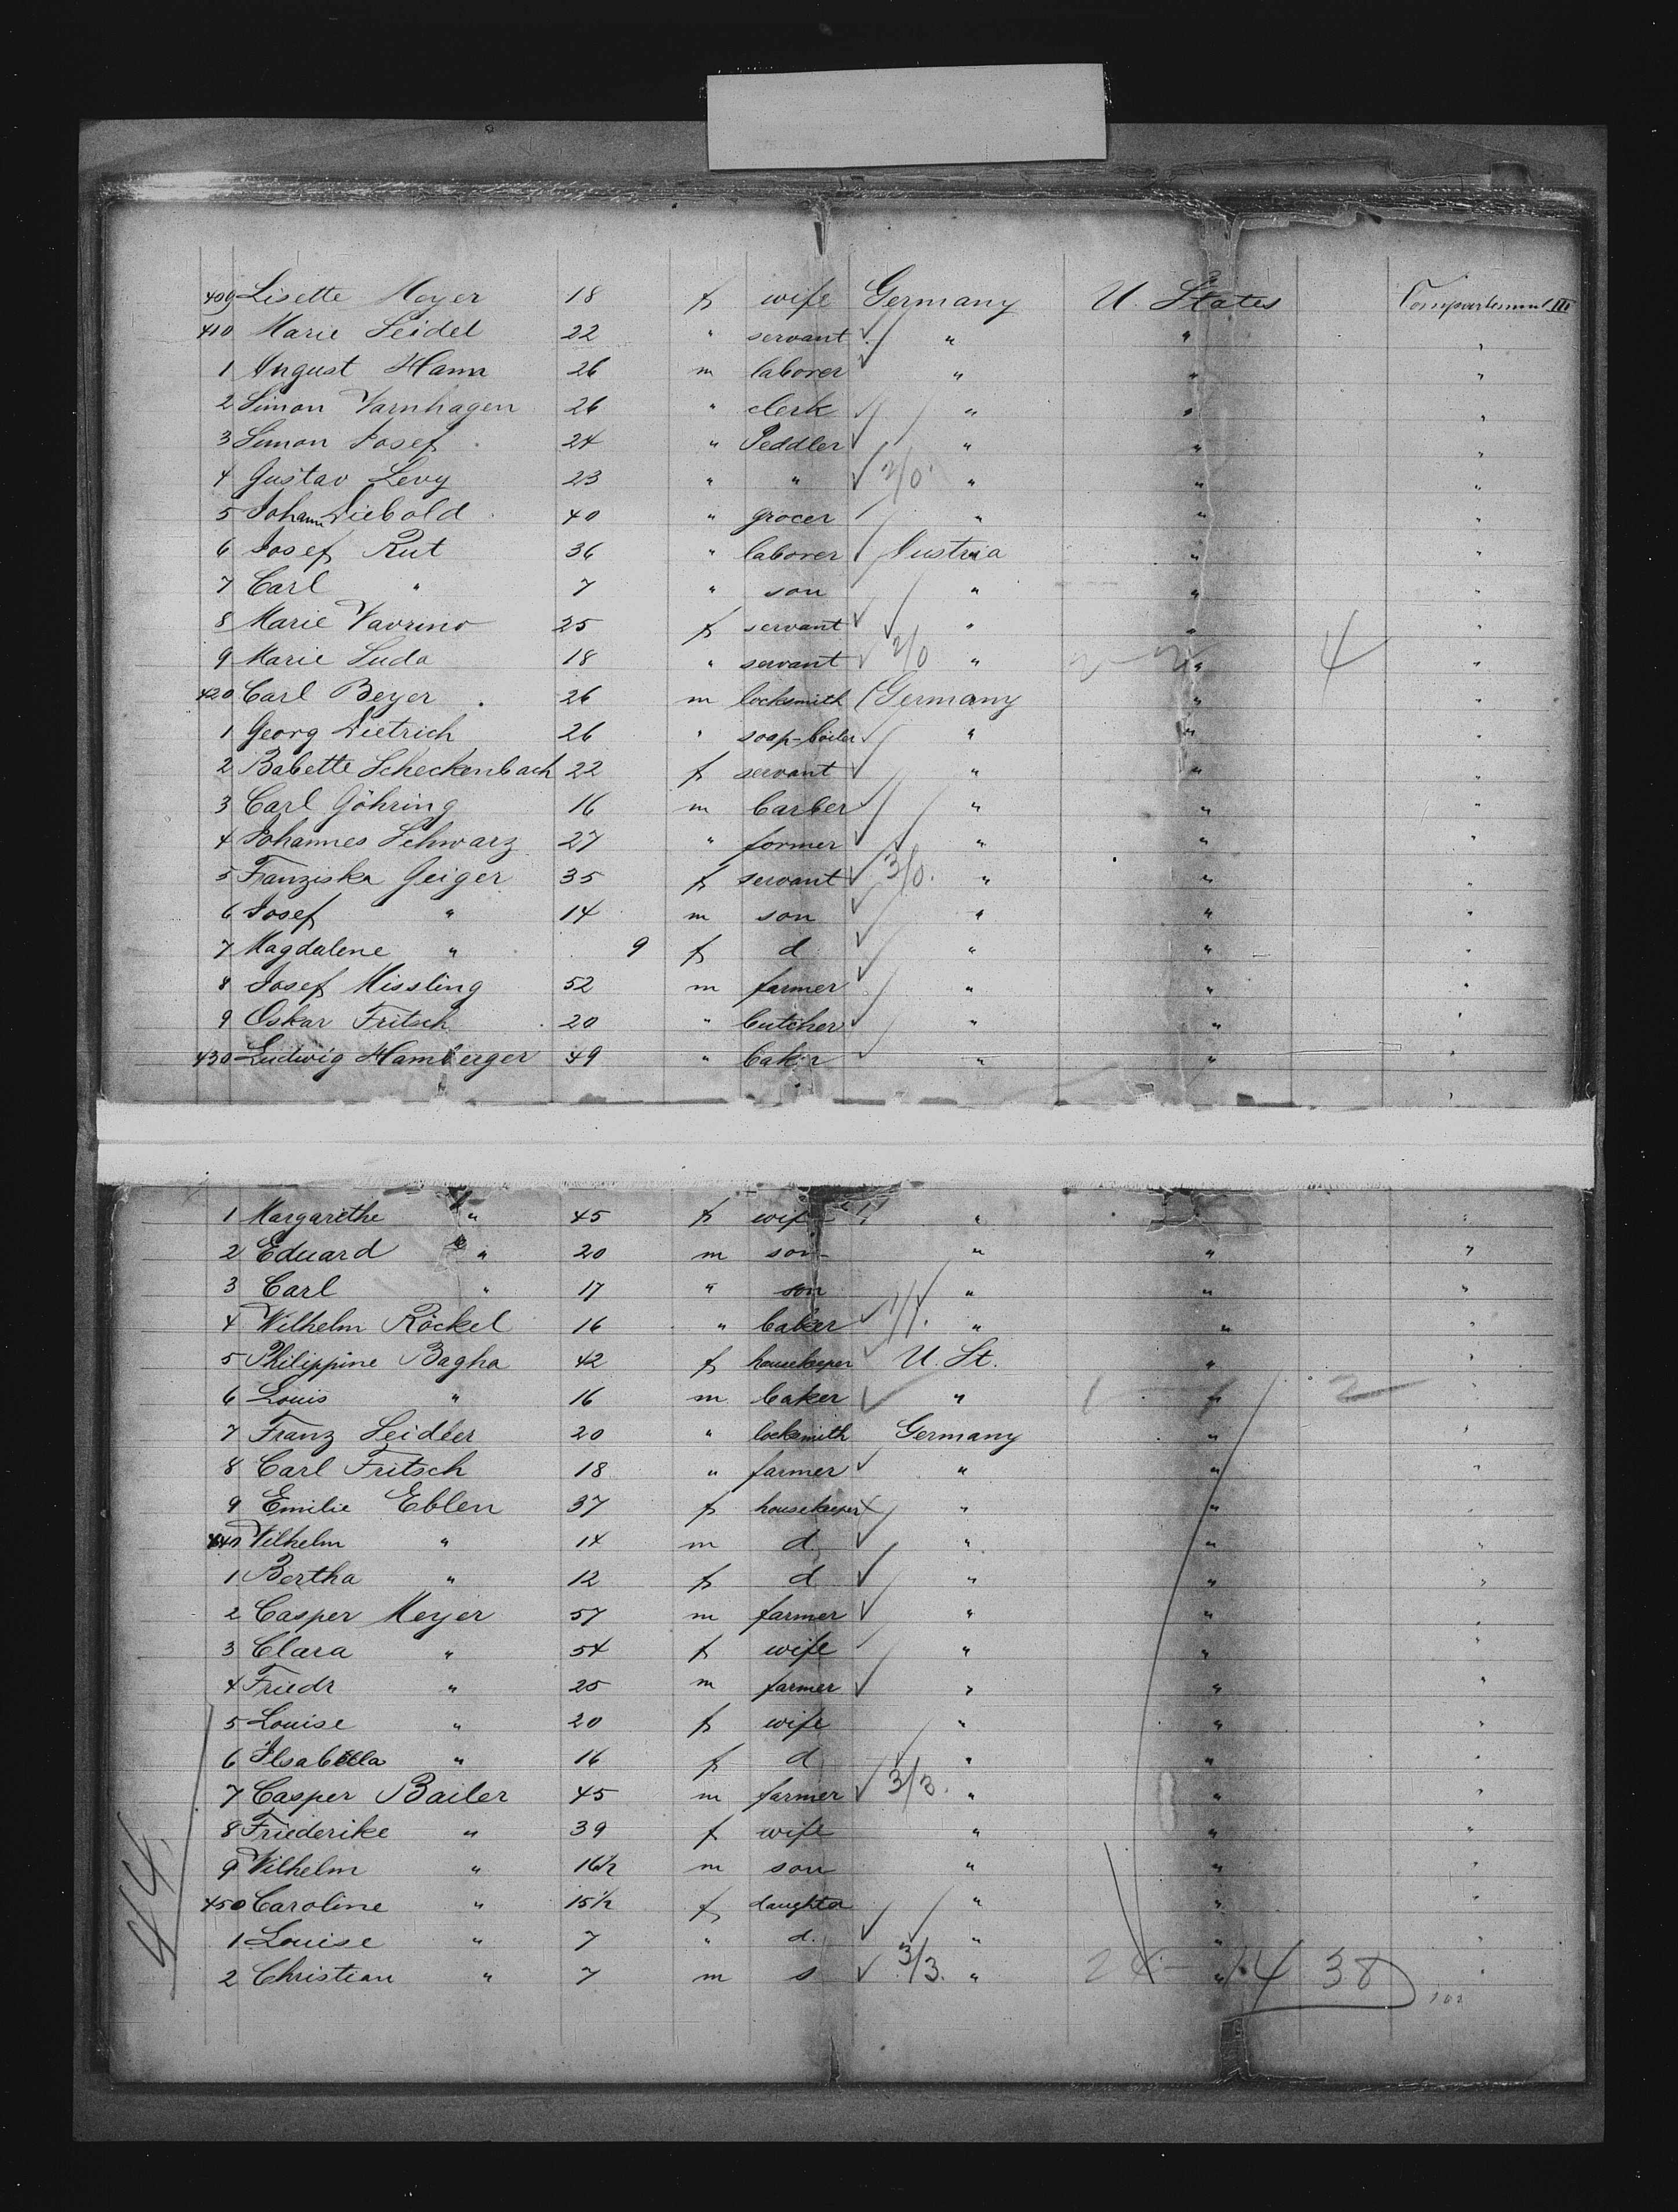 409 Lisette Meyer 18 f wife Germany U. States Compartement III
410 Marie Seidel 22 " servant " " "
1 August Hamm 26 m laborer " " "
2 Simon Varnhagen 26 " clerk " " "
3 Simon Josef 24 " Peddler " " "
4 Gustav Levy 23 " " 2/0 " " "
5 Johann Diebold 40 " grocer " " "
6 Josef Rut 36 " laborer Austria " "
7 Carl " 7 " son " " "
8 Marie Vavrino 25 f servant " " "
9 Marie Suda 18 " servant 2/0 " " 4 "
420 Carl Beyer 26 m locksmith Germany " "
1 Georg Dietrich 26 " soap-boiler " " "
2 Babette Scheckenbach 22 f servant " " "
3 Carl Göhring 16 m barber " " "
4 Johannes Schwarz 27 " former " " "
5 Franziska Geiger 35 f servant 3/0. " " "
6 Josef " 14 m son " " "
7 Magdalene " 9 f d " " "
8 Josef Missling 52 m farmer " " "
9 Oskar Fritsch 20 " butcher " " "
430 Ludwig Hamberger 49 " baker " " "
1 Margarethe " 45 f wife " "
2 Eduard " 20 m son " " "
3 Carl " 17 " son " " "
4 Wilhelm Röckel 16 " baker 1/1. " " "
5 Philippine Bagha 42 f housekeeper U. St. " "
6 Louis " 16 m baker " " 2 "
7 Franz Seidler 20 " locksmith Germany " "
8 Carl Fritsch 18 " farmer " " "
9 Emilie Eblen 37 f housekeeper " " "
440 Wilhelm " 14 m d. " " "
1 Bertha " 12 f d " " "
2 Casper Meyer 57 m farmer " " "
3 Clara " 54 f wife " " "
4 Friedr " 25 m farmer " " "
5 Louise " 20 f wife " " "
6 Ilsabella " 16 f d " " "
7 Casper Bailer 45 m farmer 3/3. " " "
8 Friederike " 39 f wife " " "
9 Wilhelm " 16½ m son " " "
450 Caroline " 15½ f daughter " " "
1 Louise " 7 " d. " " "
2 Christian " 7 m s 3/3. " " 4 38 "
44